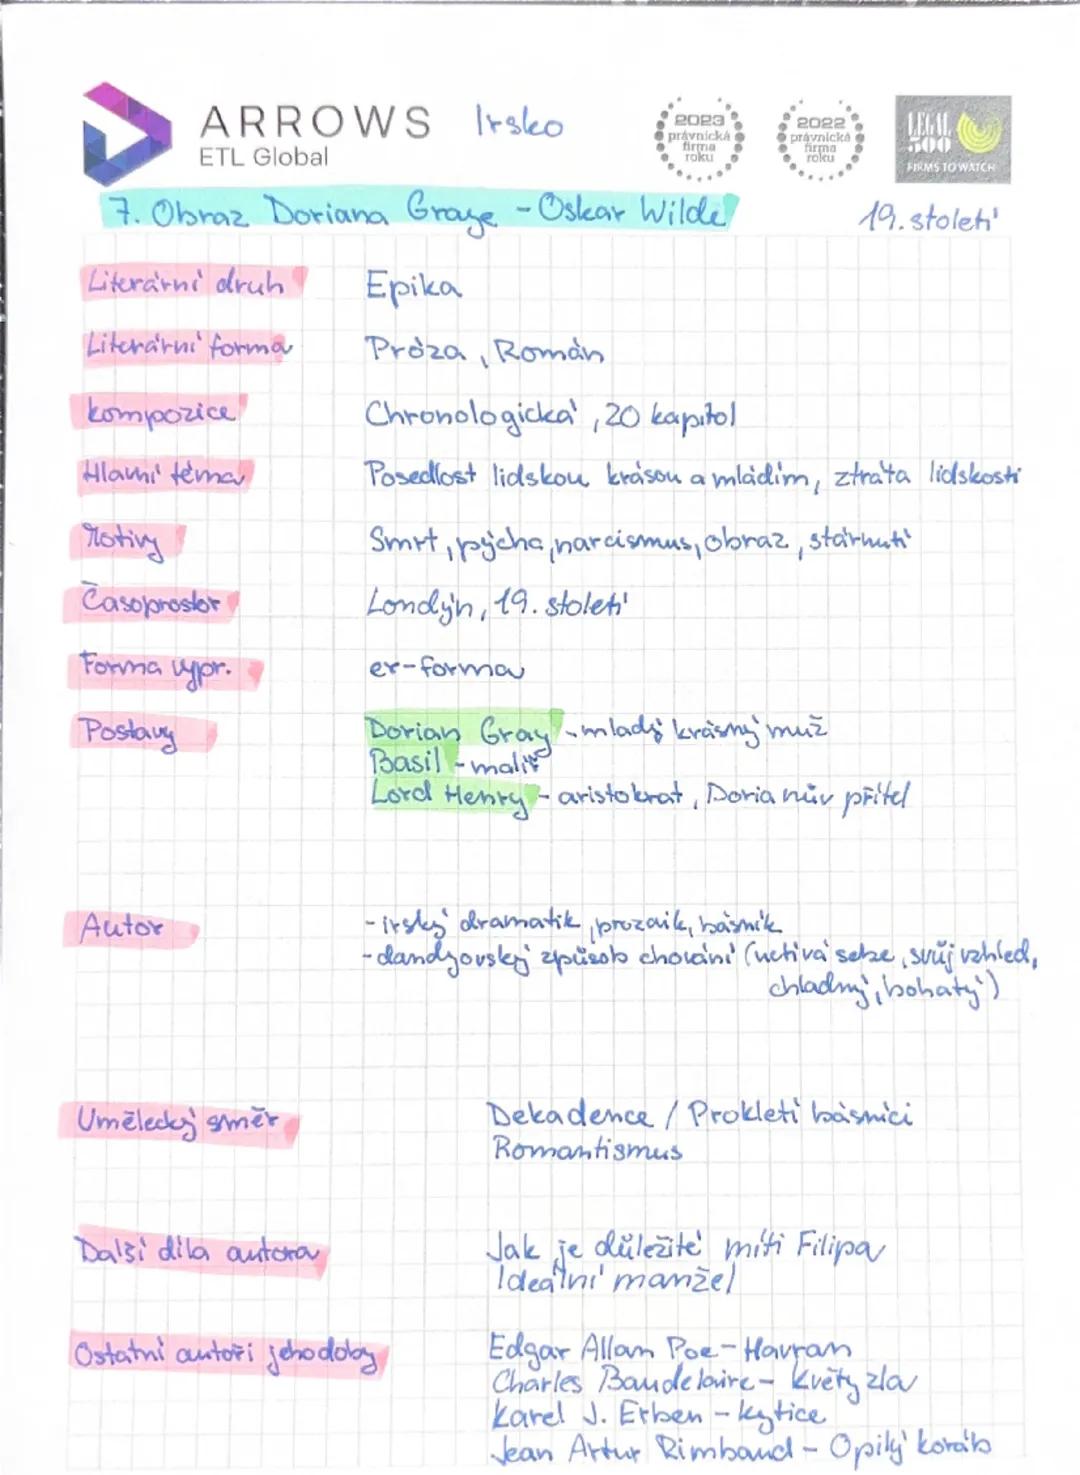 ARROWS Irsko
ETL Global
2023
právnická
firma
roku
2022
právnická
firma
roku
LEGAL
500
FIRMS TO WATCH
7. Obraz Doriana Graye - Oskar Wilde 19. století
Literární druh Epika
Literární forma Próza, Román
kompozice Chronologická, 20 kapitol
Hlavní téma Posedlost lidskou krásou a mládím, ztráta lidskosti
Motivy Smrt, pýcha, narcismus, obraz, stárnutí
Časoprostor Londýn, 19. století
Forma vypr. er-forma
Postavy Dorian Gray - mladý krásný muž
Basil - malíř
Lord Henry - aristokrat, Dorianův přítel
Autor - irský dramatik, prozaik, básník
- dandyovský způsob chování (uctívá sebe, svůj vzhled,
chladný, bohatý)
Umělecký směr Dekadence / Prokletí básníci
Romantismus
Další díla autora Jak je důležité míti Filipa
Ideální manžel
Ostatní autoři jeho doby Edgar Allan Poe - Havran
Charles Baudelaire - Květy zla
Karel J. Erben - kytice
Jean Artur Rimbaud - Opilý koráb